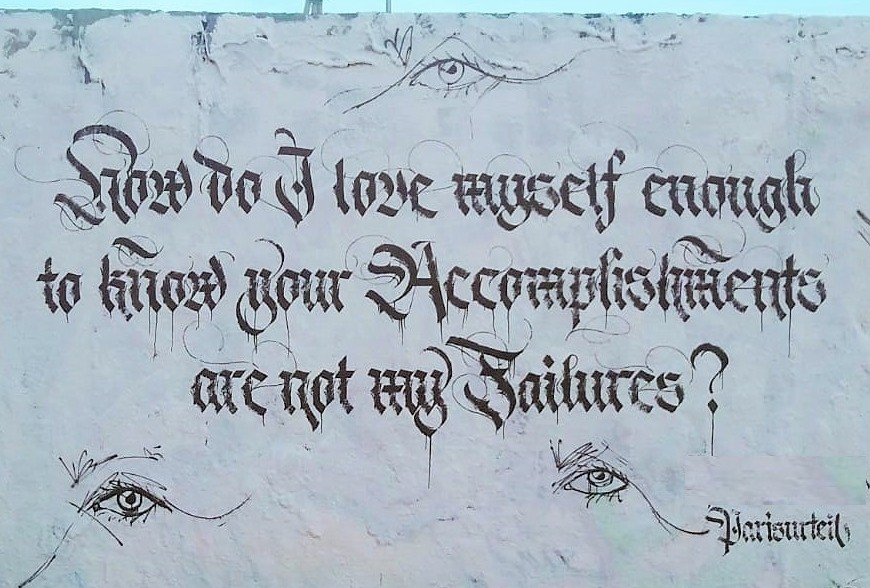 How do I love myself enough
to know your Accomplishments
are not my Failures?
Parisurteil